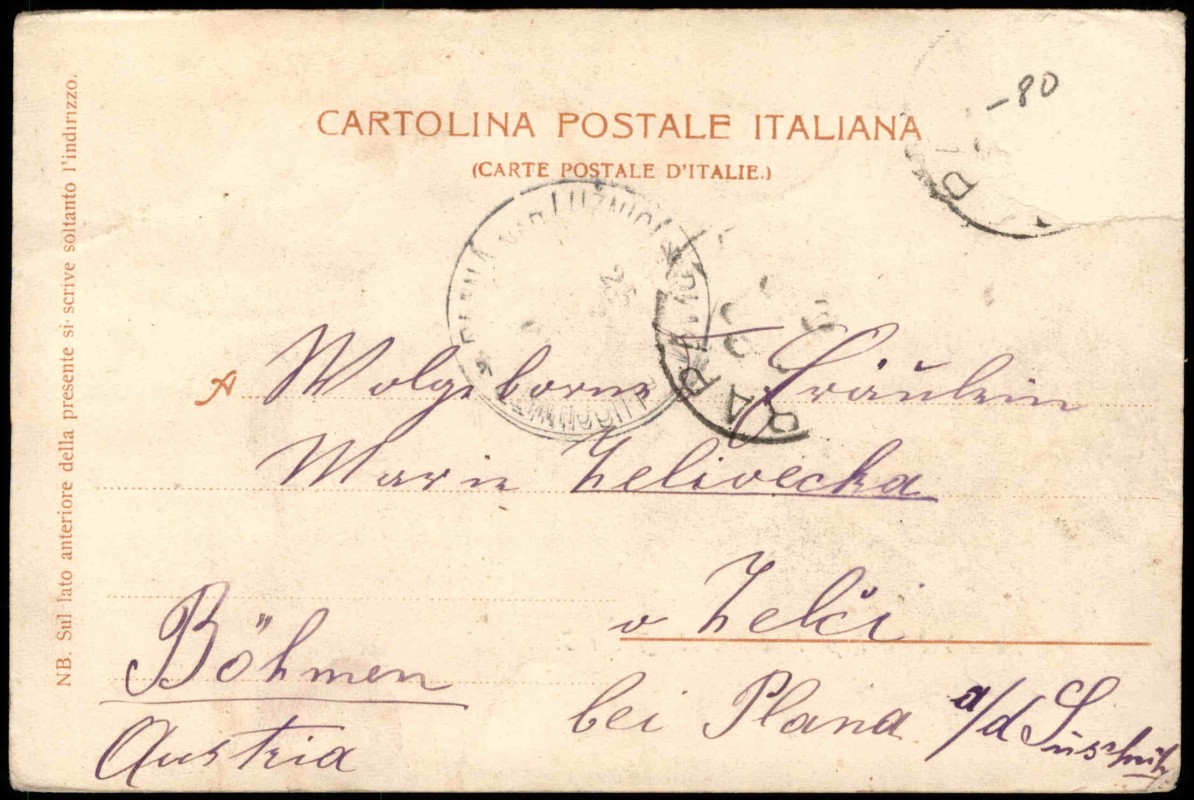 CARTOLINA POSTALE ITALIANA
(CARTE POSTALE D'ITALIE.)
-80
NB. Sul lato anteriore della presente si scrive soltanto l'indirizzo.
PLANÁ NAD LUŽNICÍ
BAP
A Wolgeborne Fräulein
Marie Zelivecka
v Zelči
Böhmen
bei Plana a/d
Austria